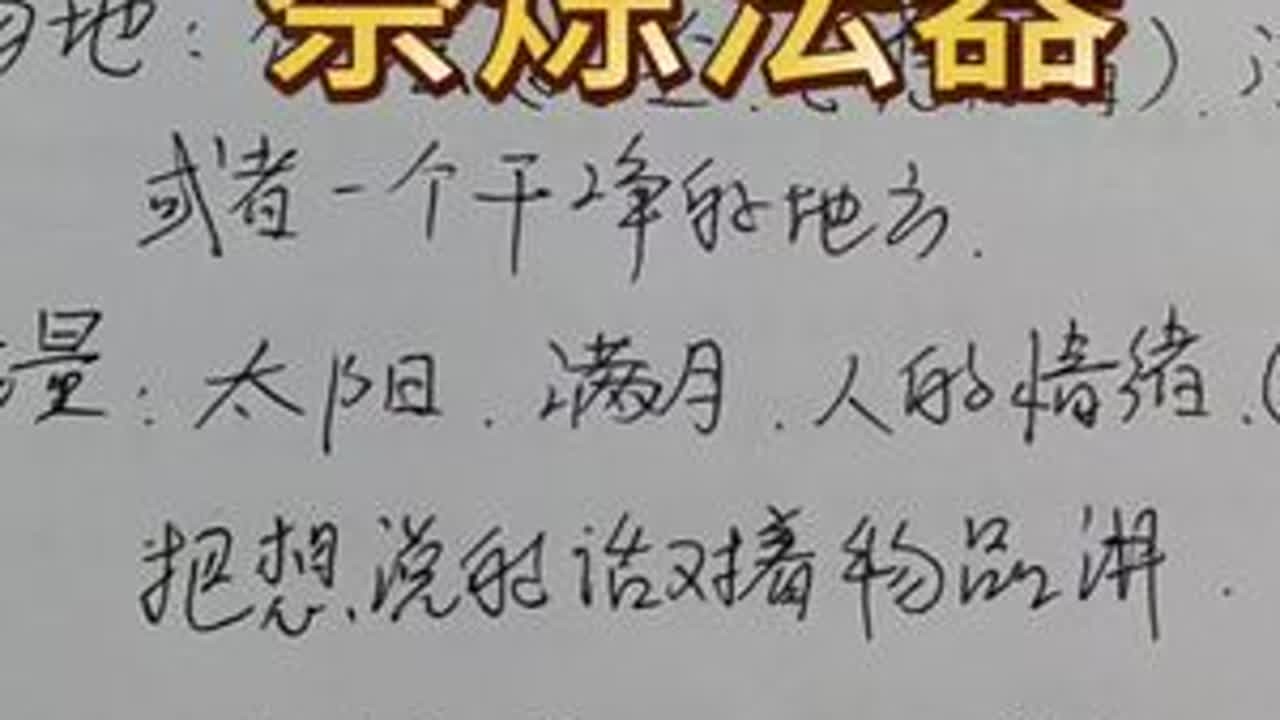 祭炼法器
地：
或者一个干净的地方.
量：太阳.满月.人的情绪.(
把想说的话对着物品讲.